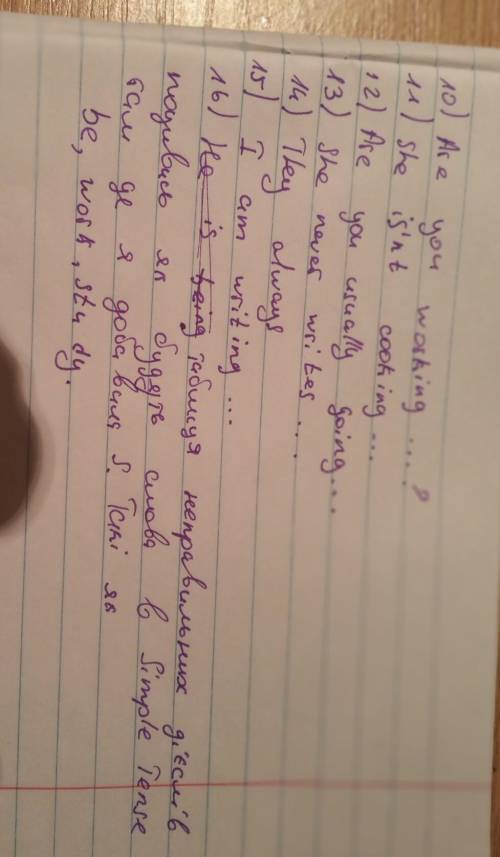 10) Are you working ... ?
11) She is'nt cooking ...
12) Are you usually going...
13) She never writes ...
14) They always
15) I am writing ...
16) He is being таблиця неправильних дієслів
подивись як будуть слова в Simple Tense
там де я добавила s. Такі як
be, work, study.